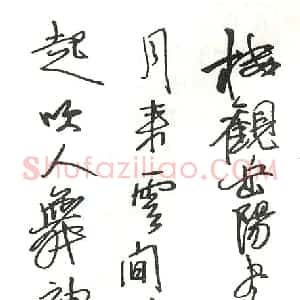 樓觀岳陽盡
月來雲間
起吹人舞袖
Shufaziliao.COM